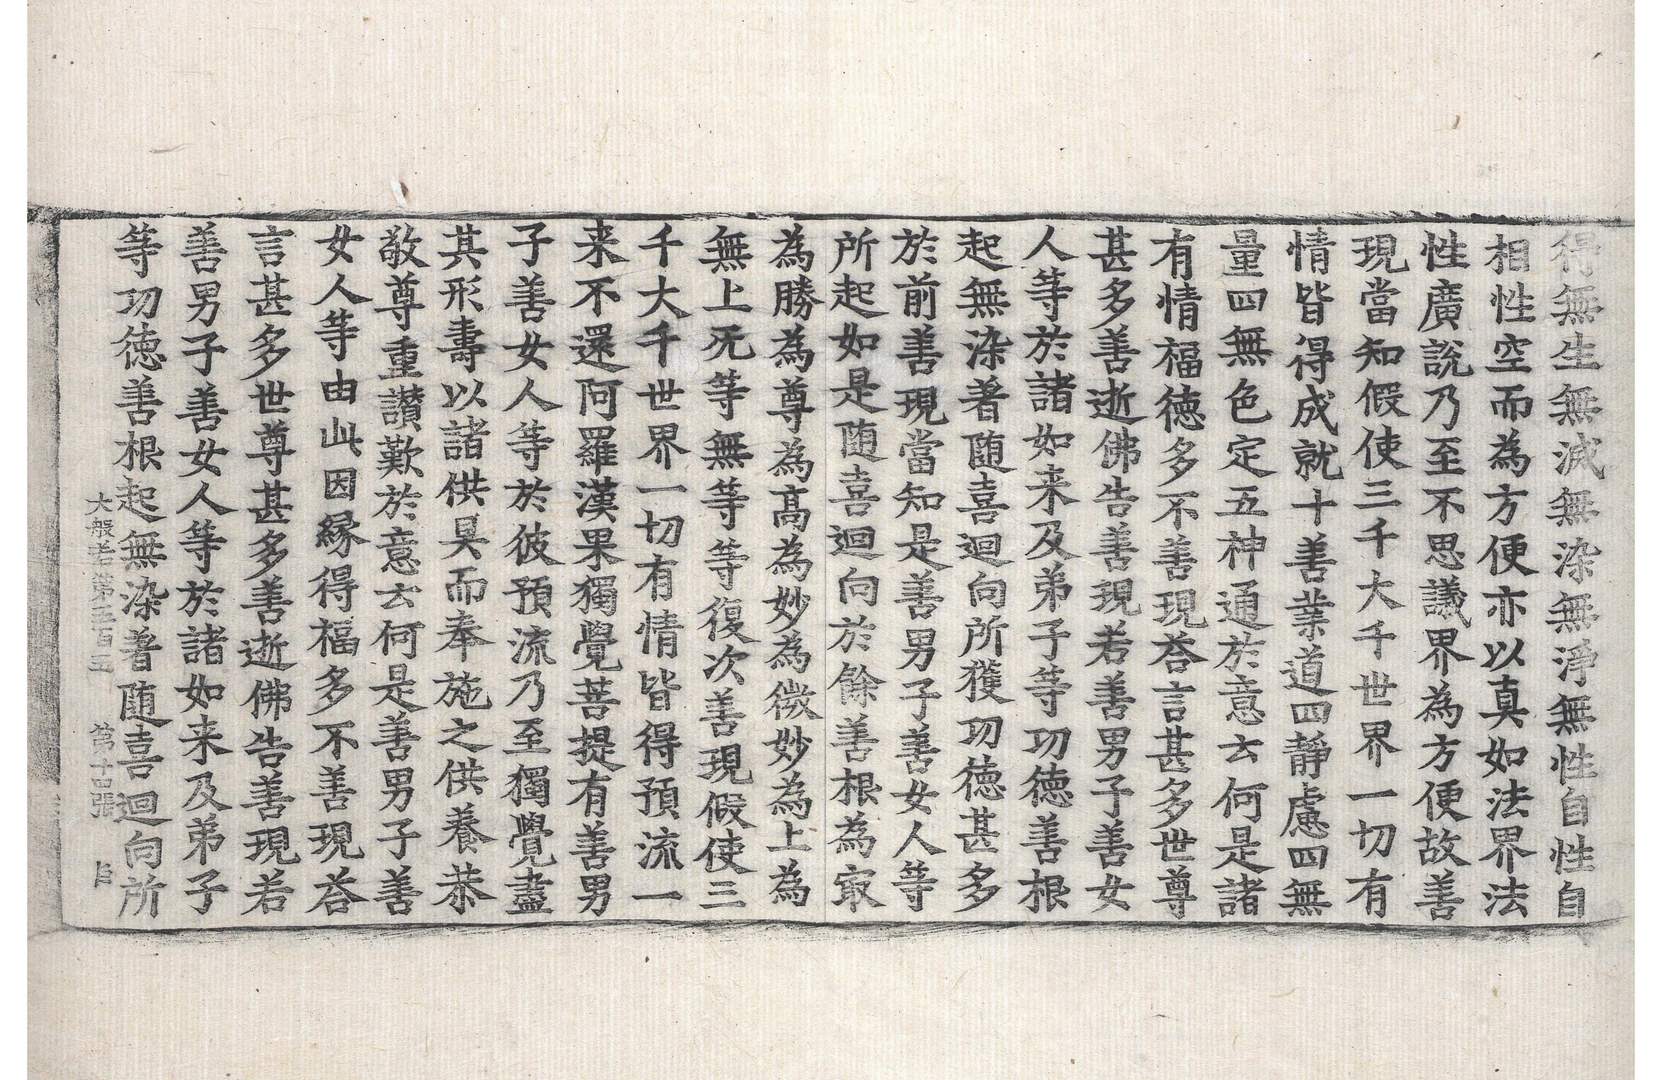 得無生無滅無染無淨無性自性自
相性空而為方便亦以真如法界法
性廣說乃至不思議界為方便故善
現當知假使三千大千世界一切有
情皆得成就十善業道四靜慮四無
量四無色定五神通於意云何是諸
有情福徳多不善現荅言甚多世尊
甚多善逝佛告善現若善男子善女
人等於諸如来及弟子等功徳善根
起無染著随喜迴向所獲功徳甚多
於前善現當知是善男子善女人等
所起如是随喜迴向於餘善根為㝡
為勝為尊為髙為妙為微妙為上為
無上无等無等等復次善現假使三
千大千世界一切有情皆得預流一
来不還阿羅漢果獨覺菩提有善男
子善女人等於彼預流乃至獨覺盡
其形壽以諸供具而奉施之供養恭
敬尊重讃歎於意云何是善男子善
女人等由此因緣得福多不善現荅
言甚多世尊甚多善逝佛告善現若
善男子善女人等於諸如来及弟子
等功徳善根起無染著随喜迴向所
大般若第五百五 第十四張